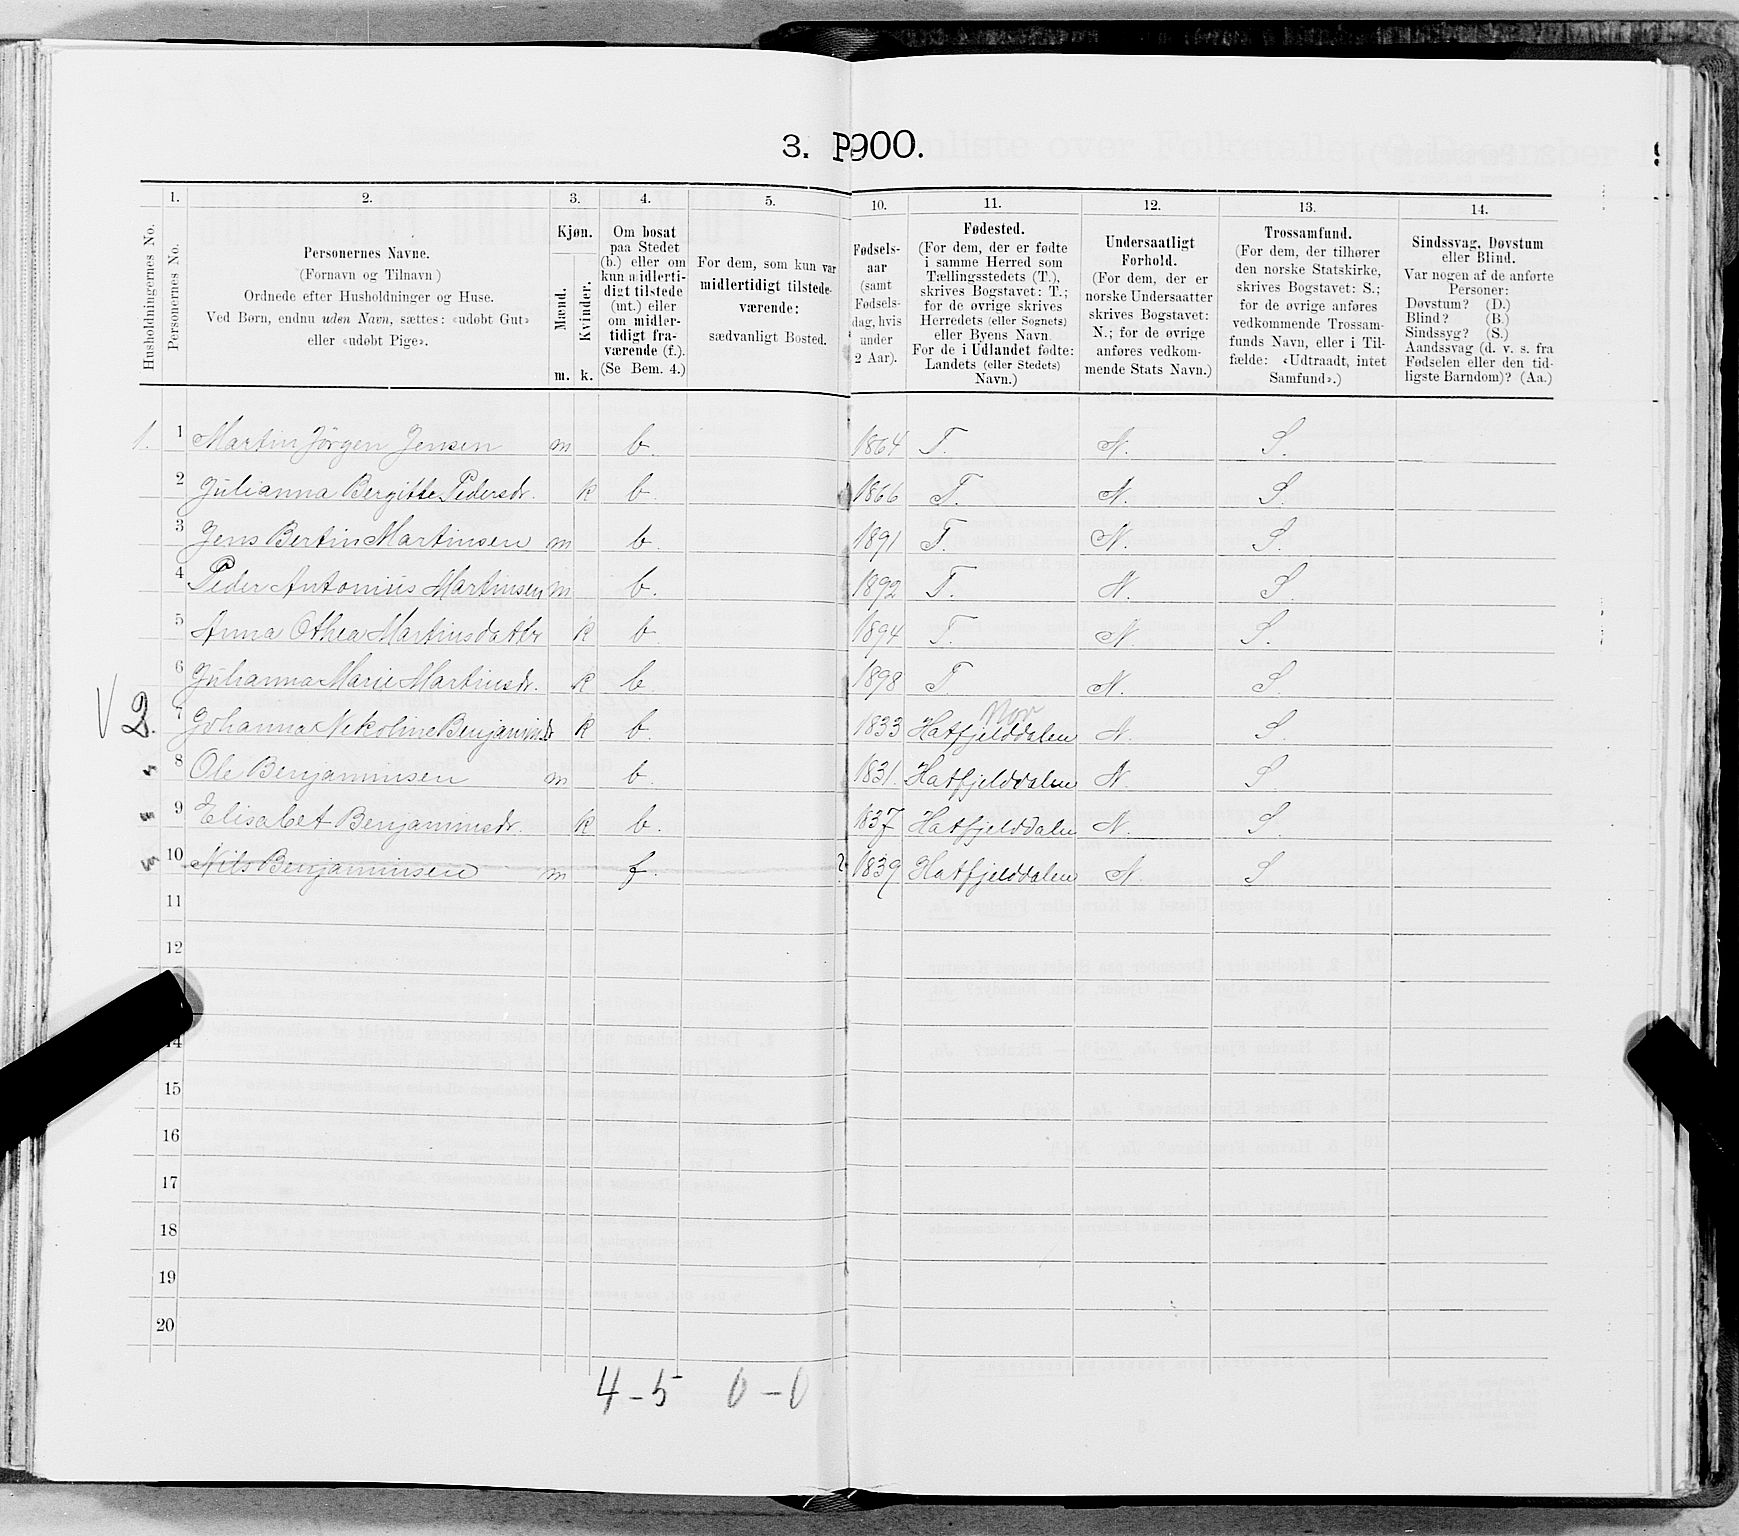 3. P900.
1. 2. 3. 4. 5. 10. 11. 12. 13. 14.
Husholdningernes No.
Personernes No.
Personernes Navne.
(Fornavn og Tilnavn)
Ordnede efter Husholdninger og Huse.
Ved Børn, endnu uden Navn, sættes: «udøbt Gut»
eller «udøbt Pige».
Kjøn.
Mænd.
Kvinder.
m. k.
Om bosat
paa Stedet
(b.) eller om
kun midlerti-
digt tilstede
(mt.) eller
om midler-
tidigt fra-
værende (f.).
(Se Bem. 4.)
For dem, som kun var
midlertidigt tilstede-
værende:
sædvanligt Bosted.
Fødsels-
aar
(samt
Fødsels-
dag, hvis
under
2 Aar).
Fødested.
(For dem, der er fødte
i samme Herred som
Tællingsstedets (T.),
skrives Bogstavet: T.;
for de øvrige skrives
Herredets (eller Sognets)
eller Byens Navn.
For de i Udlandet fødte:
Landets (eller Stedets)
Navn.)
Undersaatligt
Forhold.
(For dem, der er
norske Undersaatter
skrives Bogstavet:
N.; for de øvrige
anføres vedkom-
mende Stats Navn.)
Trossamfund.
(For dem, der tilhører
den norske Statskirke,
skrives Bogstavet: S.;
for de øvrige anføres
vedkommende Trossam-
funds Navn, eller i Til-
fælde: «Udtraadt, intet
Samfund».)
Sindssvag, Døvstum
eller Blind.
Var nogen af de anførte
Personer:
Døvstum? (D.)
Blind? (B.)
Sindssyg? (S.)
Aandssvag (d. v. s. fra
Fødselen eller den tid-
ligste Barndom)? (Aa.)
1. 1 Martin Jörgen Jensen m b. 1864 T. N. S.
2 Julianna Bergitte Pedersdr. k b. 1866 T. N. S.
3 Jens Bertin Martinsen m b. 1891 T. N. S.
4 Peder Antonius Martinsen m b. 1892 T. N. S.
5 Anna Othea Martinsdattr k b. 1894 T. N. S.
6 Julianna Marie Martinsdr. k b. 1898 T. N. S.
Nor
V 2. 7 Johanna Nekoline Benjaminsdr k b. 1833 Hatfjelddalen N. S.
" 8 Ole Benjaminsen m b. 1831. Hatfjelddalen N. S
" 9 Elisabet Benjaminsdr. k b. 1837 Hatfjelddalen N. S.
" 10 Nils Benjaminsen m f. ? 1839 Hatfjelddalen N. S
11
12
14
15
16
17
18
19
20
4-5 0-0